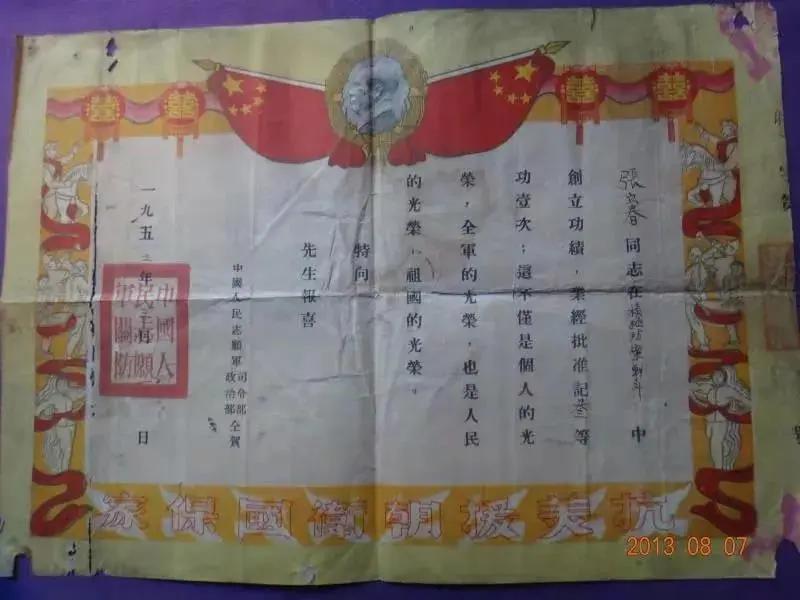 囍 囍 囍 囍
張春同志在積極防禦戰斗中
創立功績，業經批准記叁等
功壹次；這不僅是個人的光
榮，全軍的光榮，也是人民
的光榮，祖國的光榮。
特向
先生報喜
中國人民志願軍司令部政治部仝賀
一九五年月日
中國人民志願軍關防
抗美援朝衛國保家
2013 08 07